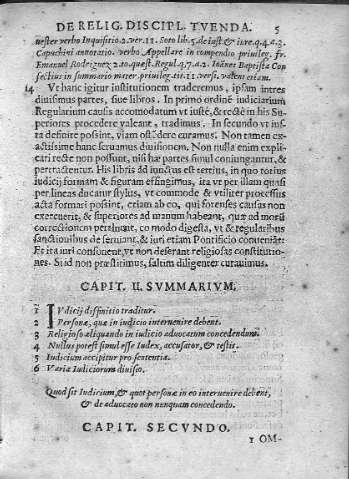 DE RELIG. DISCIPL. TVENDA. 5
nester verbo Inquisitio.2.ver.11. Soto lib.5. de iust & iure.q.4.a.3.
Capuchini annotatio. verbo Appellare in compendio priuileg. fr.
Emanuel Rodriguez 2.to.quæst. Regul.q.7.a.2. Ioānes Baptista Con
fectius in summario mater. priuileg.tit.11 versi. vatem etiam.
14 Vt hanc igitur institutionem traderemus, ipsam in tres
diuisimus partes, siue libros. In primo ordinē iudiciarium
Regularium causis accomodatum vt iustè, & rectè in his Su-
periores procedere valeant, tradimus. In secundo vt ius-
ta definite possint, viam ostēdere curamus. Non tamen ex-
actissime hunc seruamus diuisionem. Non nulla enim expli-
cari recte non possunt, nisi hæ partes simul coniungantur, &
pertractentur. His libris adiunctus est tertius, in quo totius
iudicij formam & figuram effingimus, ita vt per illam quasi
per lineas ducatur stylus, vt commode & vtiliter processus
acta formari possint, etiam ab eo, qui forenses causas non
exercuerit, & superiores ad manum habeant, quæ ad morū
correctionem pertinent, eo modo digesta, vt & regularibus
sanctionibus deseruiant, & iuri etiam Pontificio conueniāt:
Et ita iuri consonent, vt non deserant religiosas constitutio-
nes. Si id non præstitimus, saltim diligenter curauimus.
CAPIT. II. SVMMARIVM.
1 IVdicij diffinitio traditur.
2 Personæ, quæ in iudicio interuenire debent.
3 Religioso aliquando in iudicio aduocatum concedendum.
4 Nullus potest simul esse Iudex, accusator, & testis.
5 Iudicium accipitur pro sententia.
6 Varia Iudiciorum diuisio.
Quod sit Iudicium, & quot personæ in eo interuenire debent,
& de aduocato non nunquam concedendo.
CAPIT. SECVNDO.
1 OM-